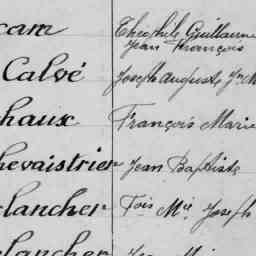 cam Théophile Guillaume
Jean François
Calvé Joseph Auguste Jn M
haux François Marie
hevaistrier Jean Baptiste
lancher Fois Mie Joseph
lancher Jean